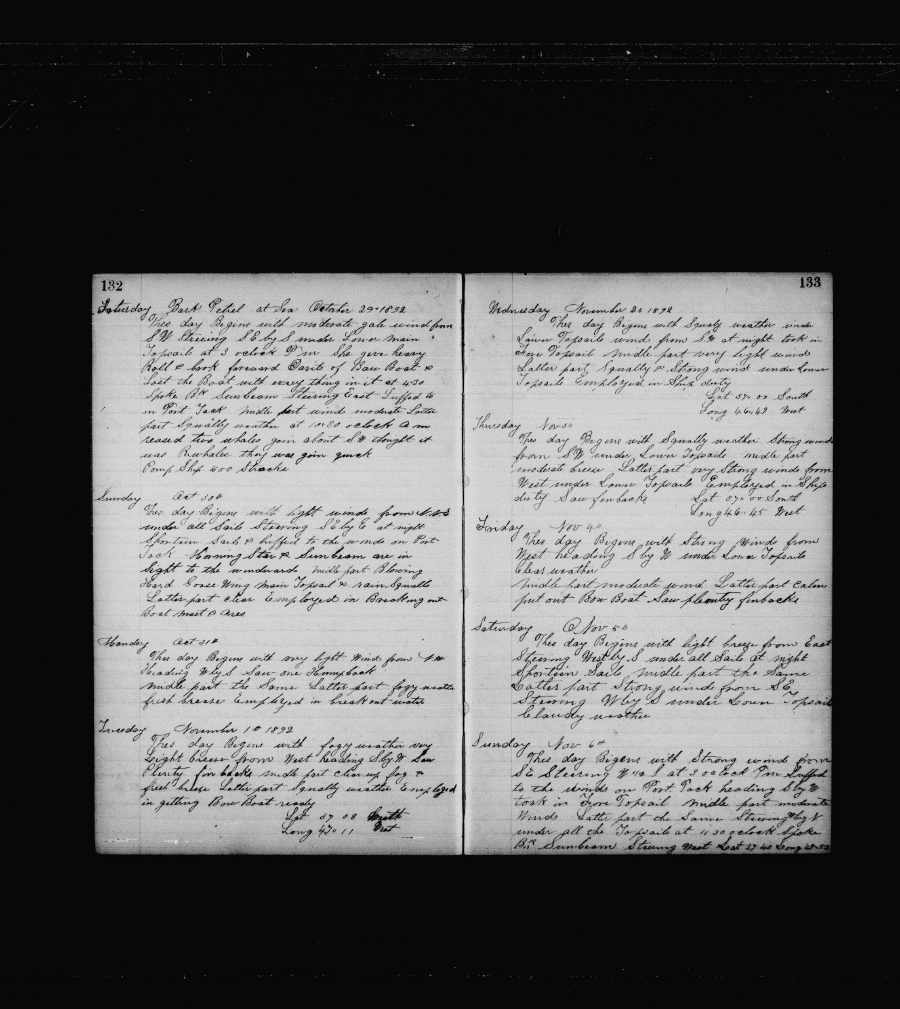 132
Saturday Bark Petrel at Sea October 29th 1892
Thes day Begins with moderate gale wind from
SW Steering SE by S under Lower main
Topsails at 3 oclock P m She give heavy
Roll & look forward Davits of Baw Boat &
Lost the Boat with every thing in it at 4 30
Spoke Bk Sunbeam Steering East Luffed to
on Port Tack midle part wind moderate Latter
part Squally weather at 10 30 oclock a m
reased two whales goin about SW thought it
was R whales they was goin quick
Pomp Ship 400 Stracks
Sunday Oct 30th
Thes day Begins with light winds from
under all Sails Steering SE by E at night
Shorten Sails & luffed to the winds on Port
Tack Morning Star & Sunbeam are in
Sight to the windward midle part Blowing
Hard Goose Wing main Topsail & rain Squalls
Latter part clear Employed in Breaking out
Boat mast & Ores
Monday Oct 31th
Thes day Begins with very light Wind from NW
Heading W by S Saw one Humpback
midle part the Same Latter part fogy weather
fresh breeze Employed in break out water
Tuesday November 1th 1892
Thes day Begins with fogy weather very
Light breeze from West heading S by W Saw
Plenty finbacks midle part clear up fog &
fresh breeze Latter part Squally weather Employed
in getting Bow Boat ready
Lat 37 08 South
Long 47 11 West
133
Wednesday November 2th 1892
Thes day Begins with Squaly weather under
Lower Topsails wind from SW at night took in
Fore Topsail midle part very light wind
Latter part Squally & Strong wind under Lower
Topsails Employed in Ship duty
Lat 37 00 South
Long 46 42 West
Thursday Nov 3th
Thes day Begins with Squally weather Strong winds
from SW under Lower Topsails midle part
moderate breeze Latter part very Strong winds from
West under Lower Topsails Employed in Ships
duty Saw finbacks Lat 37 00 South
Long 46 45 West
Friday Nov 4th
Thes day Begins with Strong Winds from
West heading S by W under Lower Topsails
Clear weather
midle part moderate wind Latter part Calm
put out Bow Boat Saw plenty finbacks
Saturday Nov 5th
Thes day Begins with light breeze from East
Steering West by S under all Sails at night
Shorten Sails midle part the Same
Latter part Strong wind from SE
Steering W by S under Lower Topsails
Cloudy weather
Sunday Nov 6th
Thes day Begins with Strong wind from
SE Steering W by S at 3 oclock P m Luffed
to the winds on Port Tack heading S by W
took in Fore Topsail midle part moderate
Winds Latte part the Same Steering W by N
under all the Topsails at 11 30 oclock Spoke
Bk Sunbeam Steering West Lat 37 40 Long